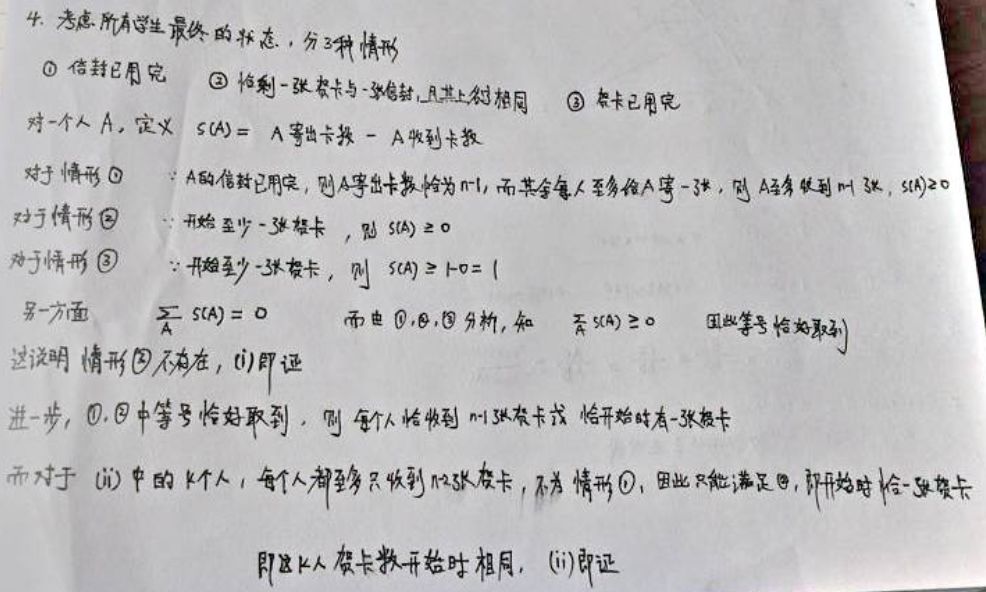 4. 考虑所有学生最终的状态，分3种情形
① 信封已用完 ② 恰剩一张贺卡与一张信封，且其上名字相同 ③ 贺卡已用完
对一个人 A，定义 S(A) = A寄出卡数 - A收到卡数
对于情形① ∵ A的信封已用完，则A寄出卡数恰为n-1，而其余每人至多给A寄一张，则 A至多收到 n-1 张，S(A)≥0
对于情形② ∵ 开始至少一张贺卡，则 S(A) ≥ 0
对于情形③ ∵ 开始至少一张贺卡，则 S(A) ≥ 1-0 = 1
另一方面 ∑_A S(A) = 0 而由 ①,②,③ 分析，知 ∑_A S(A) ≥ 0 因此等号恰好取到
这说明 情形③不存在，(i)即证
进一步，①,②中等号恰好取到，则 每个人恰收到 n-1张贺卡或 恰开始时有一张贺卡
而对于 (ii) 中的 k个人，每个人都至多只收到 n-2张贺卡，不为 情形①，因此只能满足②，即开始时恰一张贺卡
即这k人 贺卡数开始时相同，(ii)即证